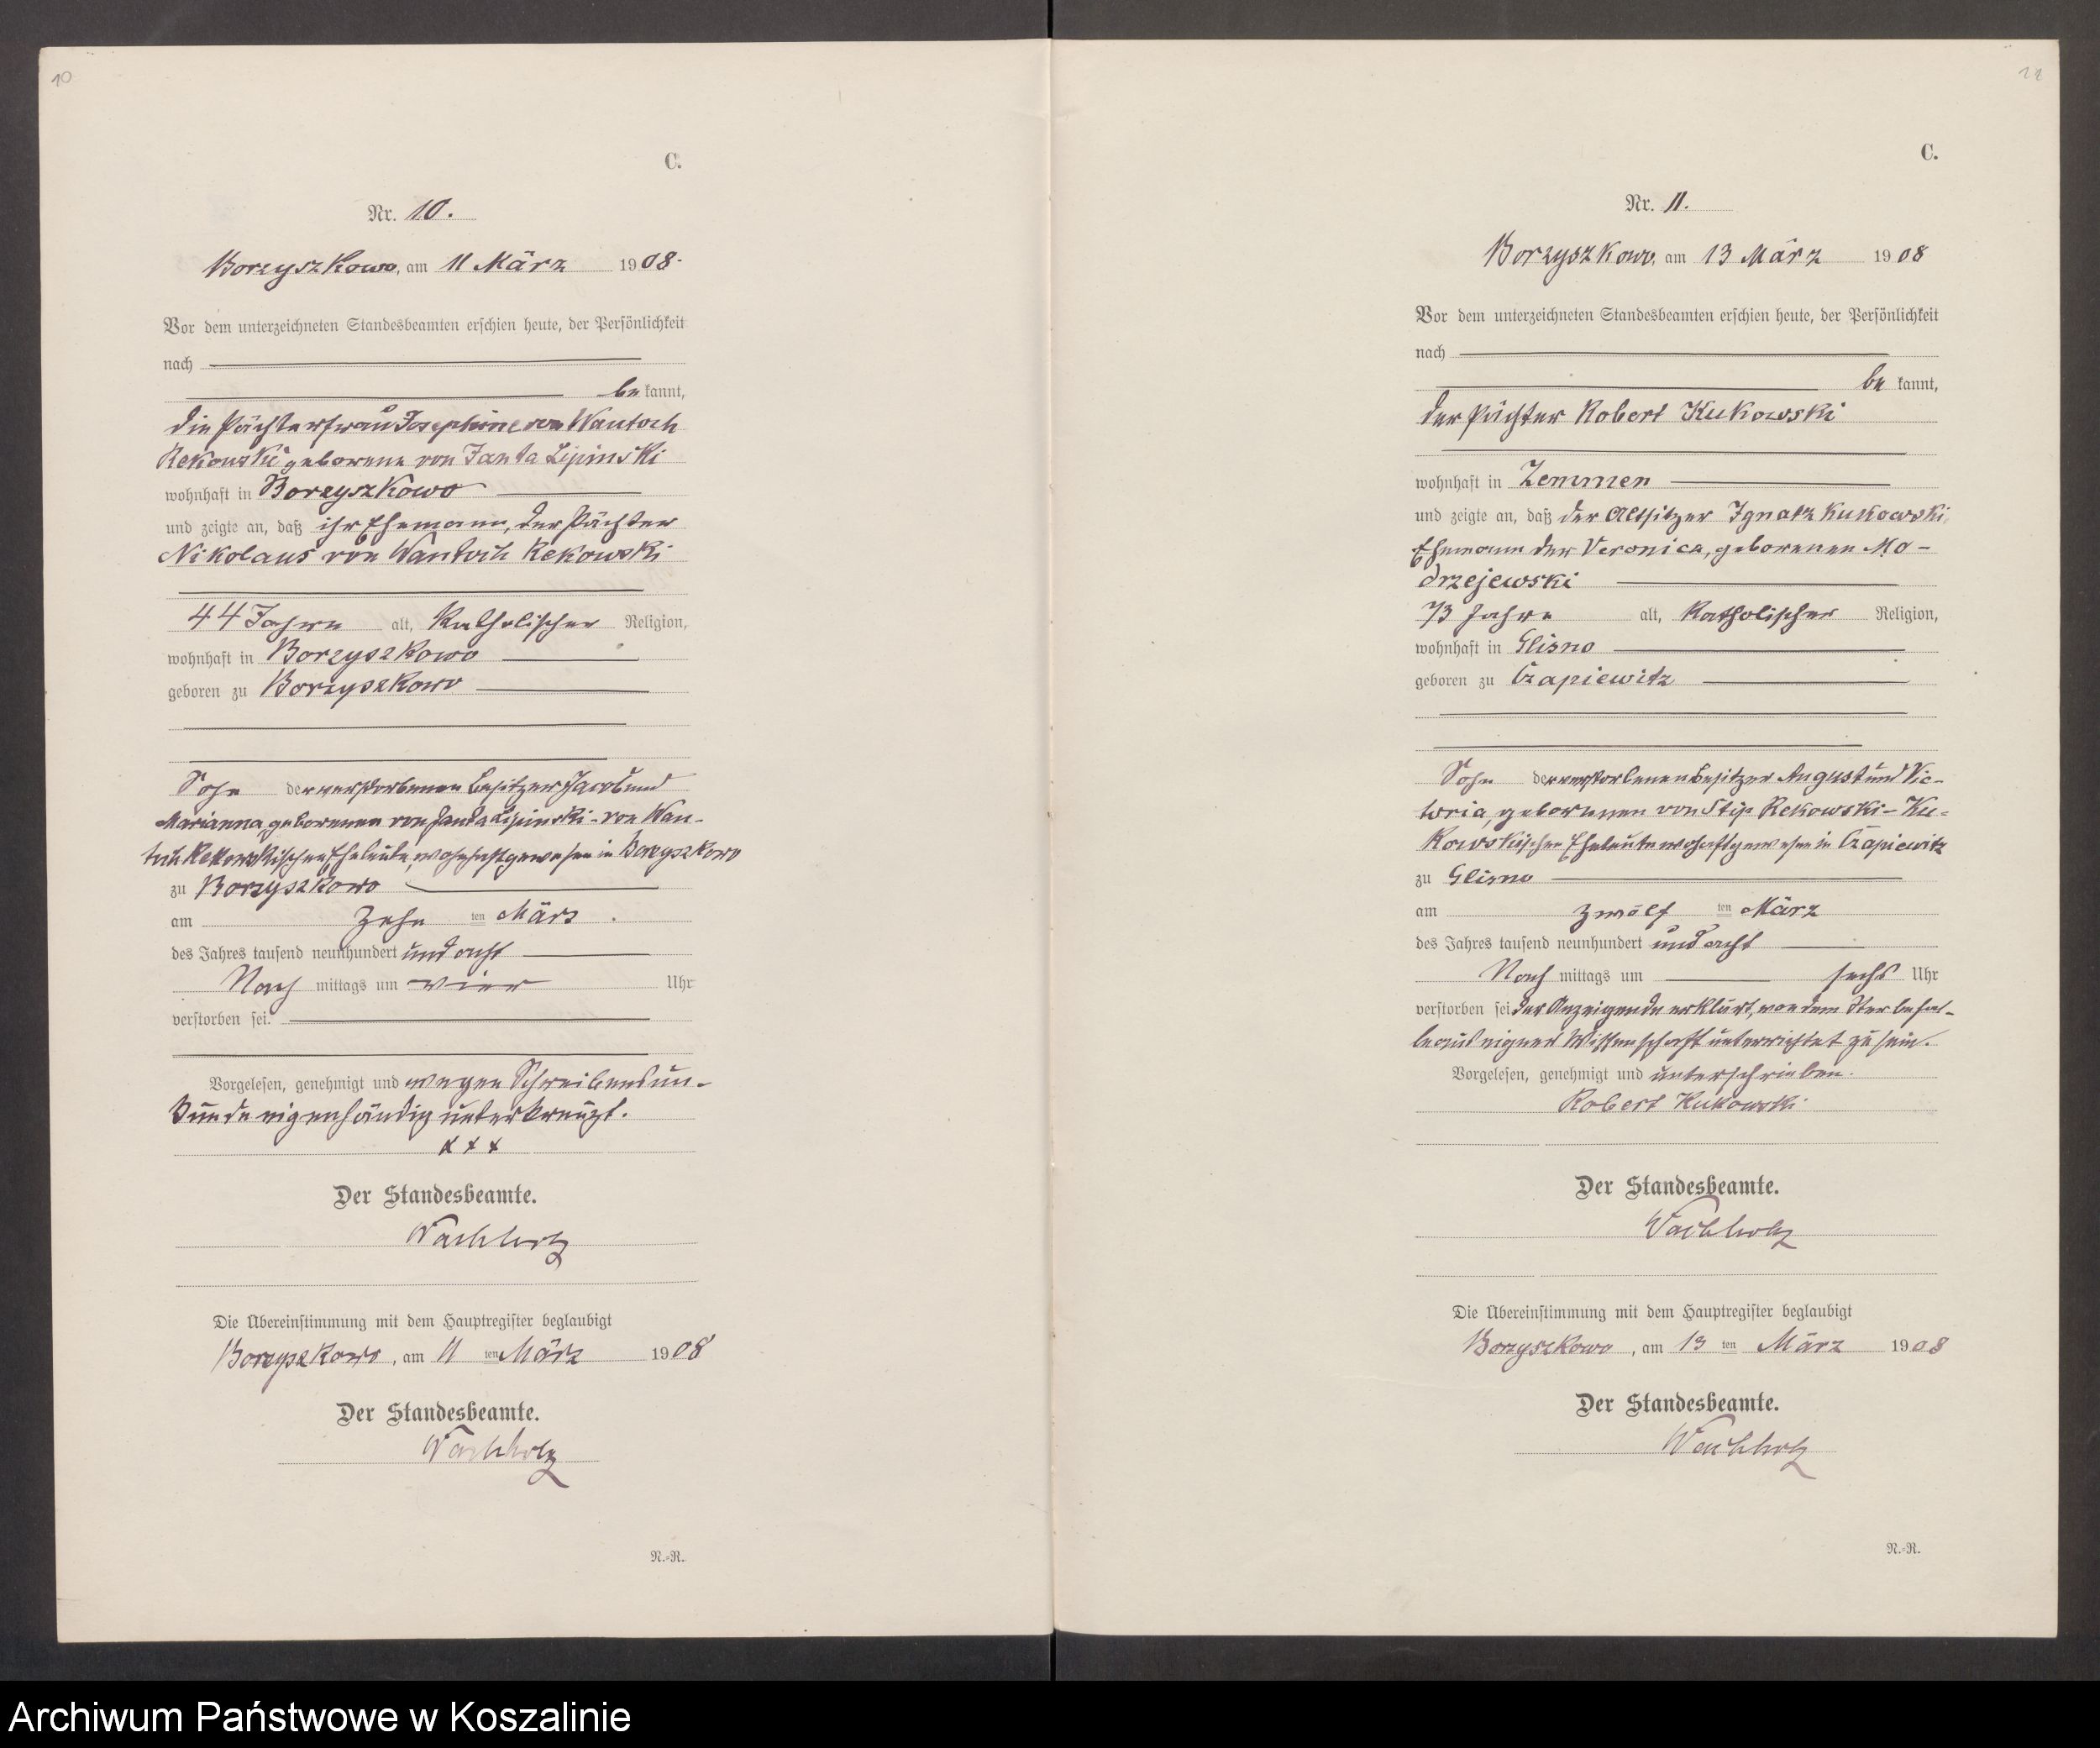 10
C.
Nr. 10.
Borzyszkowo, am 11 März 1908.
Vor dem unterzeichneten Standesbeamten erschien heute, der Persönlichkeit
nach
bekannt,
die Pächterfrau Josephine von Wantoch
Rekowski geborene von Janta Lipinski
wohnhaft in Borzyszkowo
und zeigte an, daß ihr Ehemann, der Pächter
Nikolaus von Wantoch Rekowski
44 Jahre alt, katholischer Religion,
wohnhaft in Borzyszkowo
geboren zu Borzyszkowo
Sohn der verstorbenen Besitzer Jacob und
Marianna, geborenen von Janta Lipinski - von Wan-
toch Rekowskischen Eheleute, wohnhaft gewesen in Borzyszkowo
zu Borzyszkowo
am zehn ten März.
des Jahres tausend neunhundert und acht
Nach mittags um vier Uhr
verstorben sei.
Vorgelesen, genehmigt und wegen Schreibensun-
kunde eigenhändig unterkreuzt.
x x x
Der Standesbeamte.
Wachholz
Die Übereinstimmung mit dem Hauptregister beglaubigt
Borzyszkowo, am 11 ten März 1908
Der Standesbeamte.
Wachholz
N.-R.
C.
Nr. 11.
Borzyszkowo, am 13 März 1908
Vor dem unterzeichneten Standesbeamten erschien heute, der Persönlichkeit
nach
bekannt,
der Pächter Robert Kukowski
wohnhaft in Zemmen
und zeigte an, daß der Altsitzer Ignatz Kukowski,
Ehemann der Veronica, geborenen Mo-
drzejewski
73 Jahre alt, katholischer Religion,
wohnhaft in Glisno
geboren zu Czapiewitz
Sohn der verstorbenen Besitzer August und Vic-
toria, geborenen von Stip Rekowski - Ku-
kowskischen Eheleute wohnhaft gewesen in Czapiewitz
zu Glisno
am zwölf ten März
des Jahres tausend neunhundert und acht
Nach mittags um sechs Uhr
verstorben sei der Anzeigende erklärt, von dem Sterbefal-
le aus eigner Wissenschaft unterrichtet zu sein.
Vorgelesen, genehmigt und unterschrieben.
Robert Kukowski
Der Standesbeamte.
Wachholz
Die Übereinstimmung mit dem Hauptregister beglaubigt
Borzyszkowo, am 13 ten März 1908
Der Standesbeamte.
Wachholz
N.-R.
Archiwum Państwowe w Koszalinie